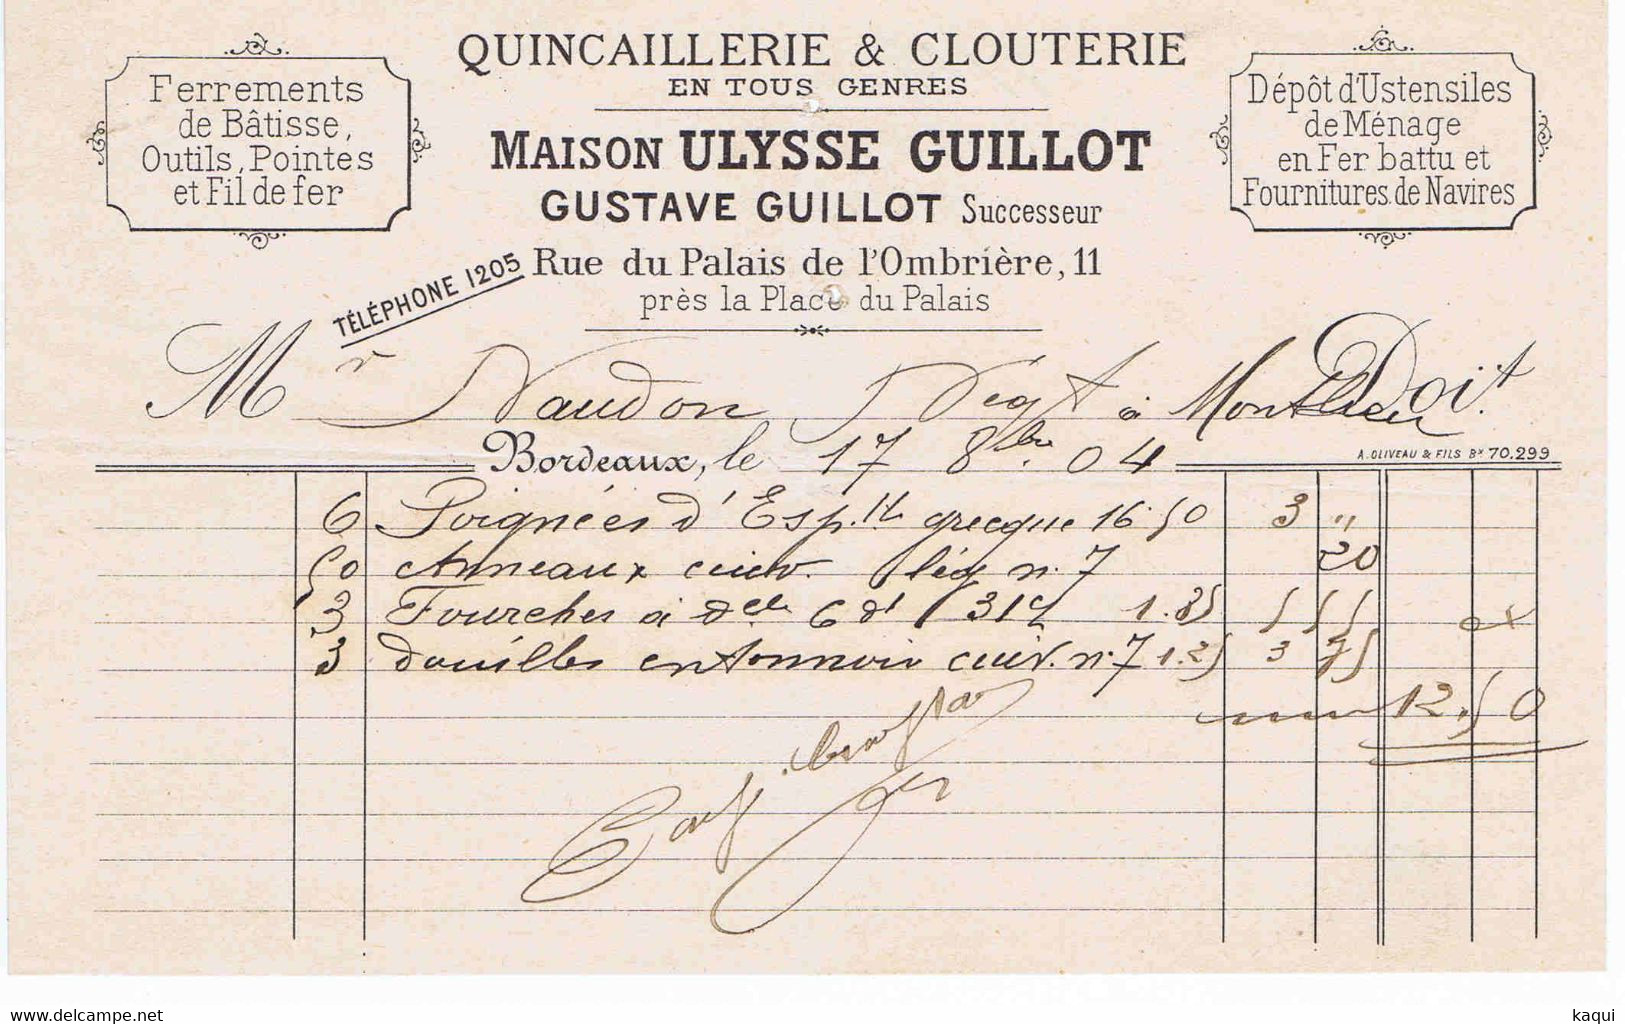 QUINCAILLERIE & CLOUTERIE
EN TOUS GENRES
Ferrements
de Bâtisse,
Outils, Pointes
et Fil de fer
MAISON ULYSSE GUILLOT
GUSTAVE GUILLOT Successeur
Dépôt d'Ustensiles
de Ménage
en Fer battu et
Fournitures de Navires
TÉLÉPHONE 1205
Rue du Palais de l'Ombrière, 11
près la Place du Palais
Mr Naudon Négt à Doit
Bordeaux, le 17 8bre 04
A. OLIVEAU & FILS Bx 70,299
6 Poignées d'Esp. grecque 16 50 3 "
50 Anneaux cuiv. lég n. 7 20
3 Fourches à 6 dt 31 1.85 5 55
3 douilles entonnoir cuiv. n. 7 1.25 3 75
12.50
delcampe.net
kaqui